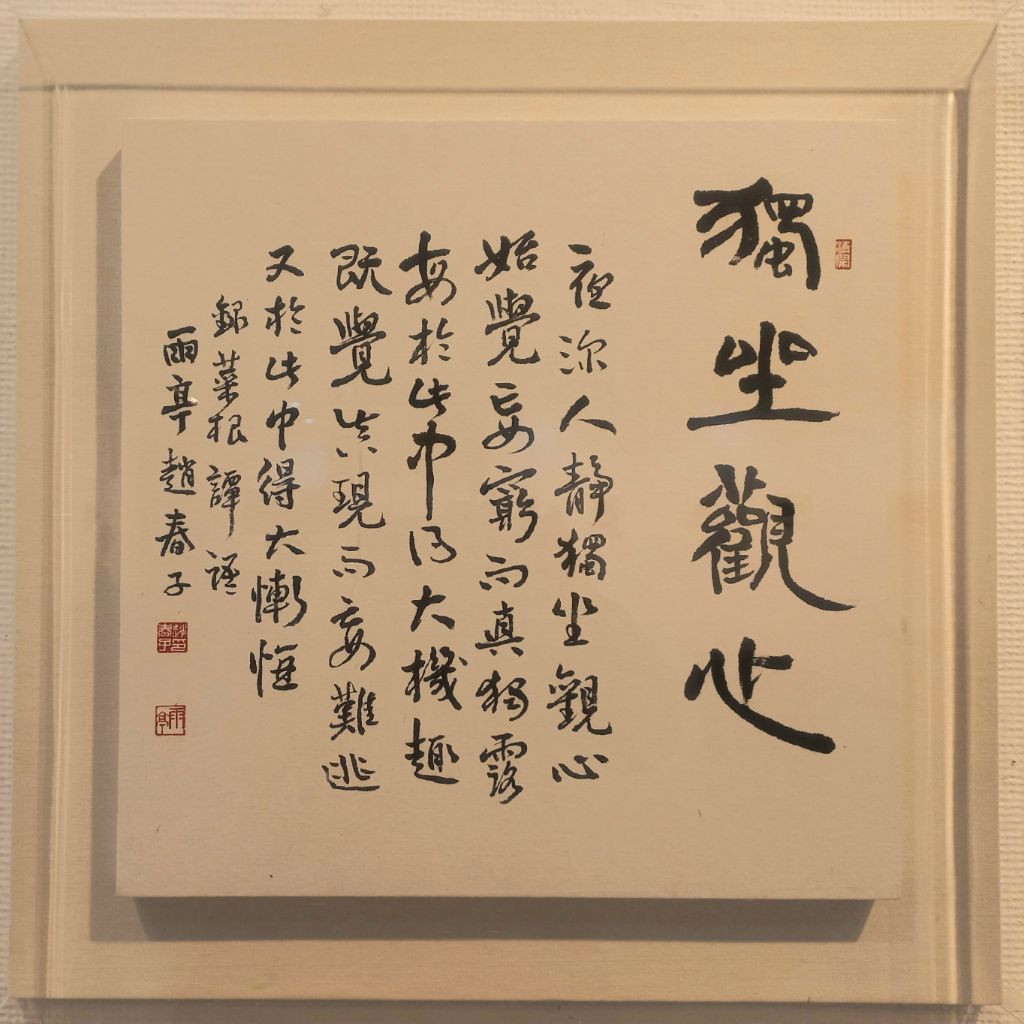 獨坐觀心
夜深人靜獨坐觀心
始覺妄窮而真獨露
每於此中得大機趣
既覺真現而妄難逃
又於此中得大慚悔
錄菜根譚
雨亭趙春子
趙春子印
雨亭